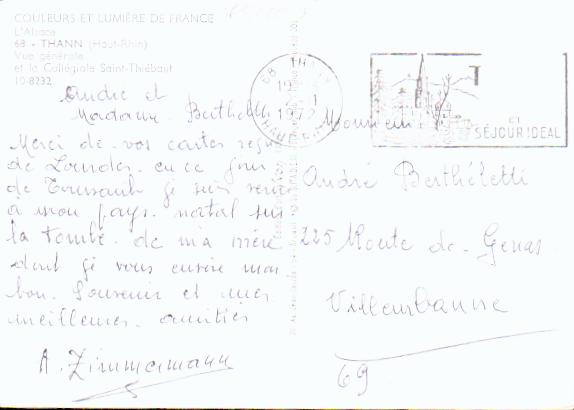 COULEURS ET LUMIÈRE DE FRANCE
L'Alsace
68 - THANN (Haut-Rhin)
Vue générale
et la Collégiale Saint-Thiébaut
10-8232
68 THANN
1972
HAUT RHIN
ET
SÉJOUR IDEAL
André et
Madame Berthéletti
Merci de vos cartes reçu
de Landes. en ce jour
de Toussaint je suis venu
à mon pays. natal sur
la tombe. de ma mère
dont je vous envoie mon
bon. Souvenir et mes
meilleures. amitiés
A. Zimmermann
Monsieur
André Berthéletti
225 Route de. Genas
Villeurbanne
69